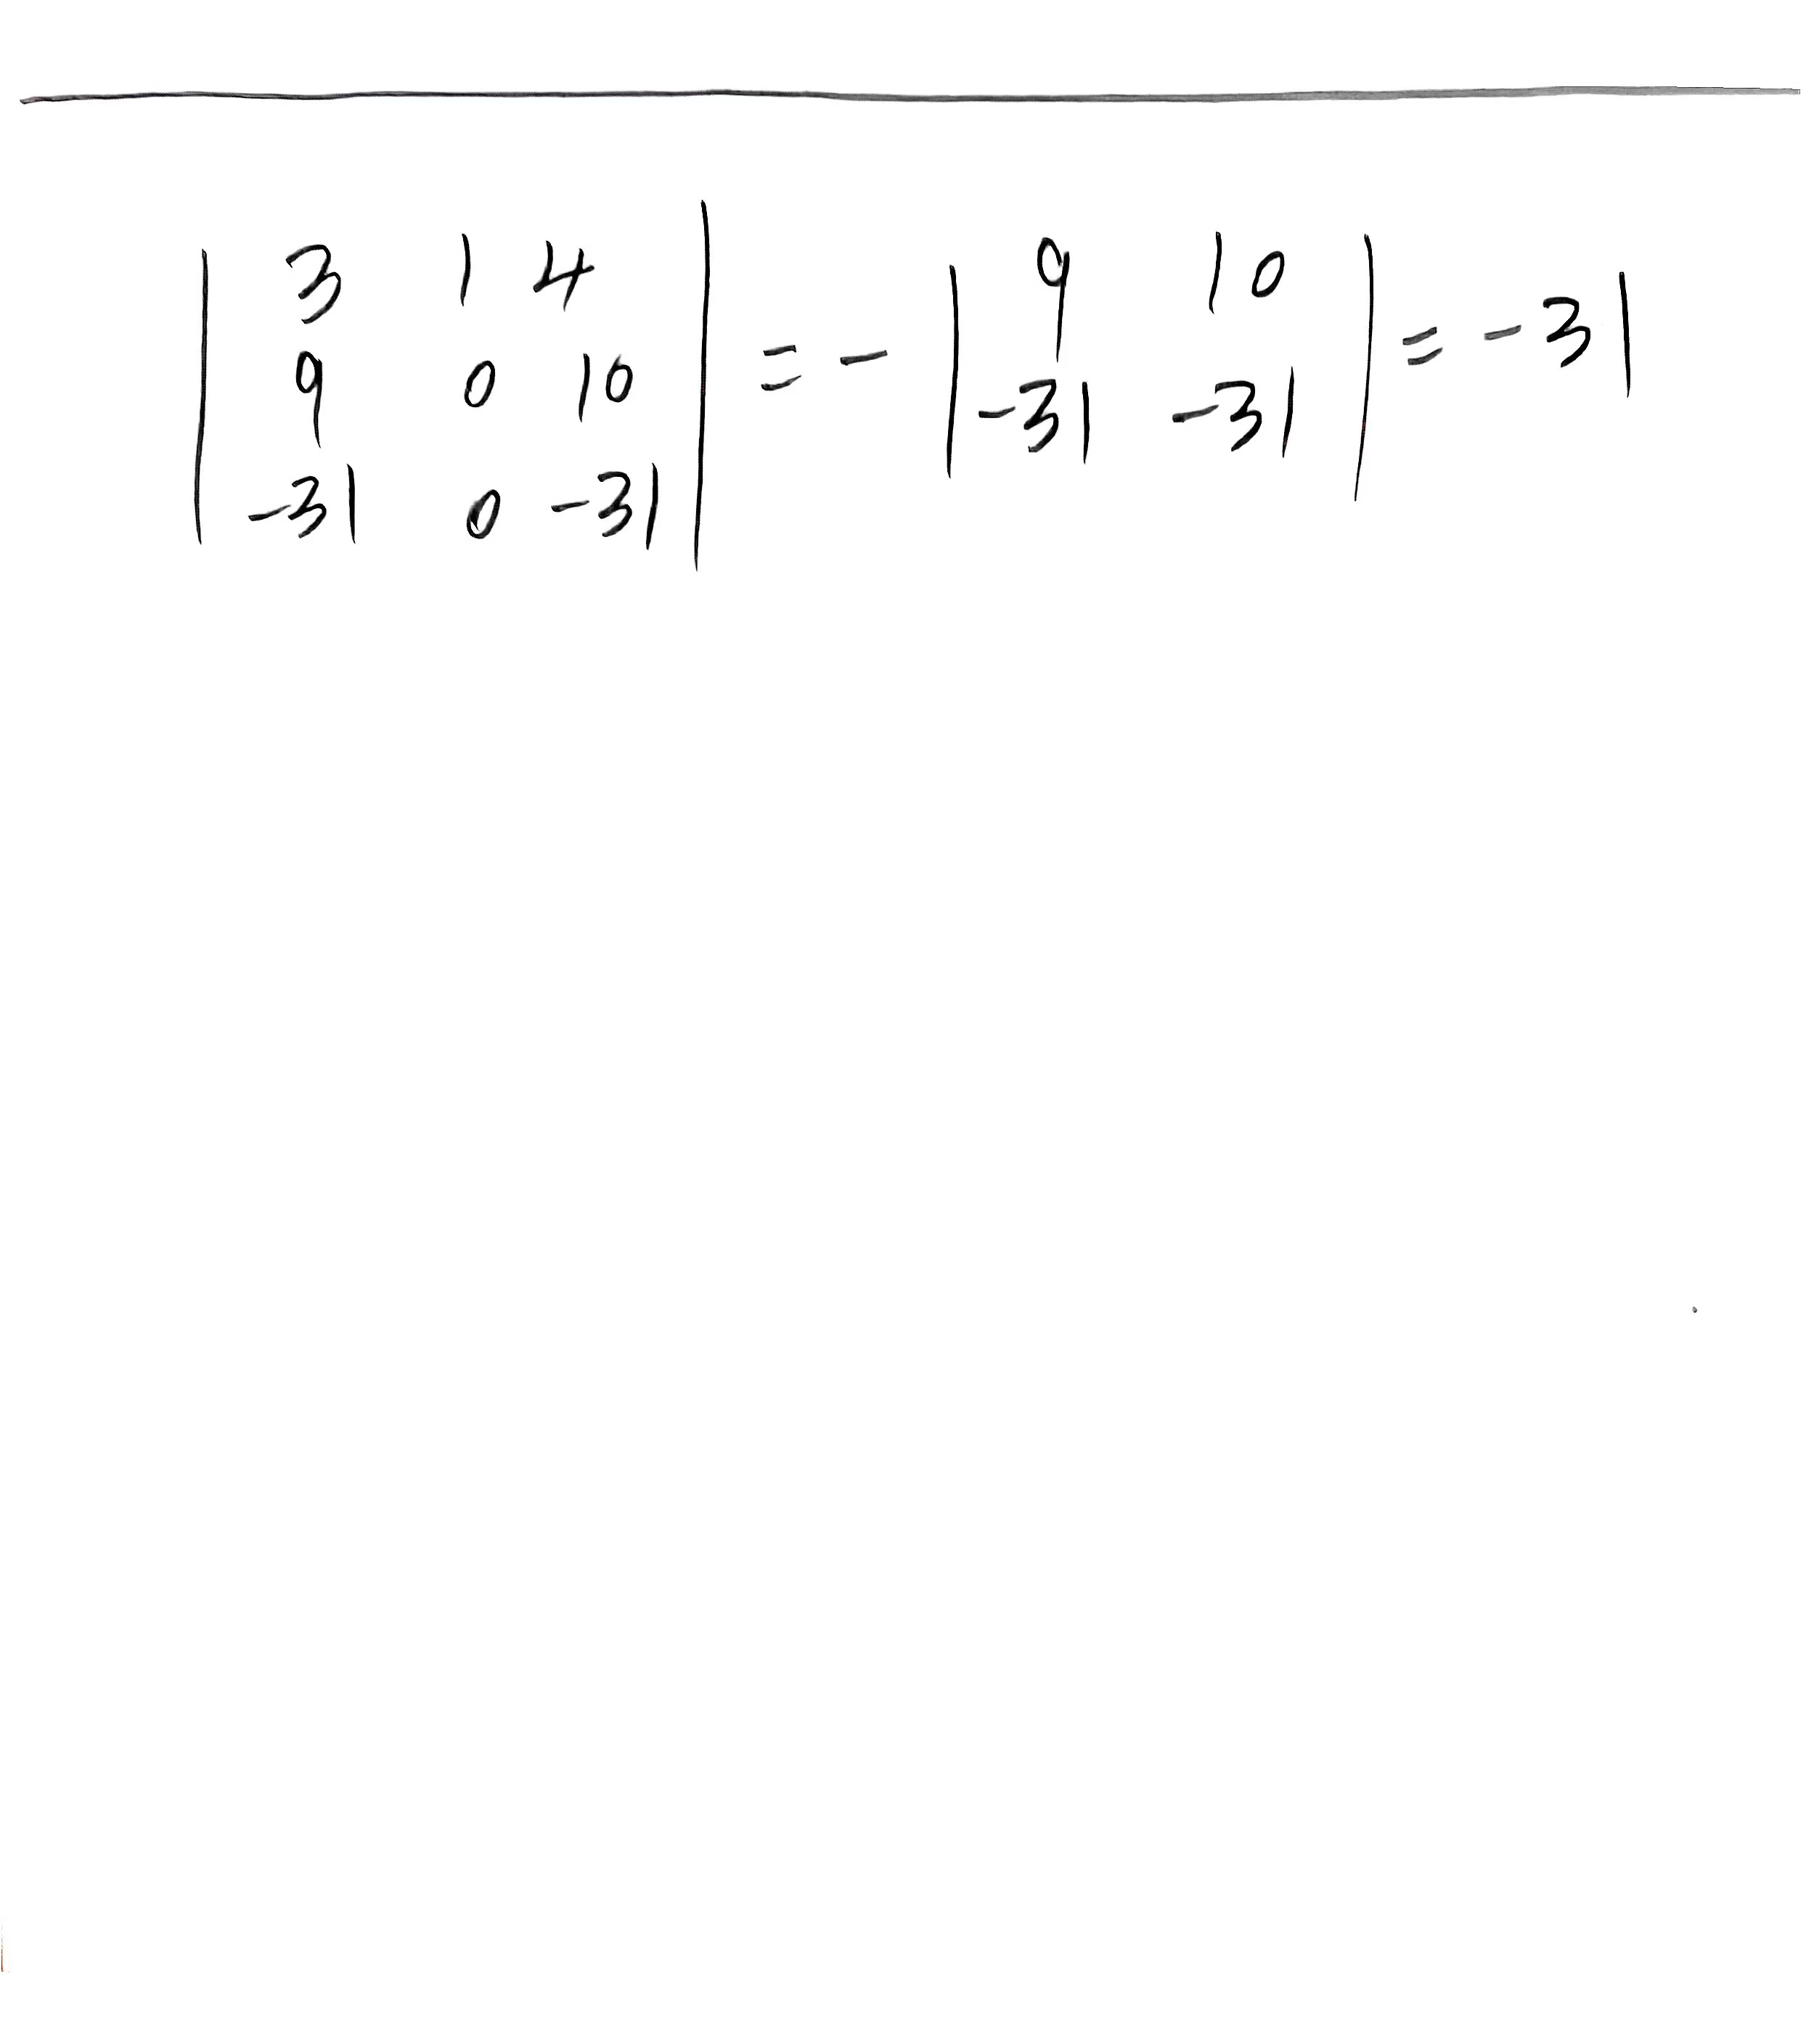 | 3 1 4 |
| 9 0 10 | = - | 9 10 | = -31
| -31 0 -31 | | -31 -31 |